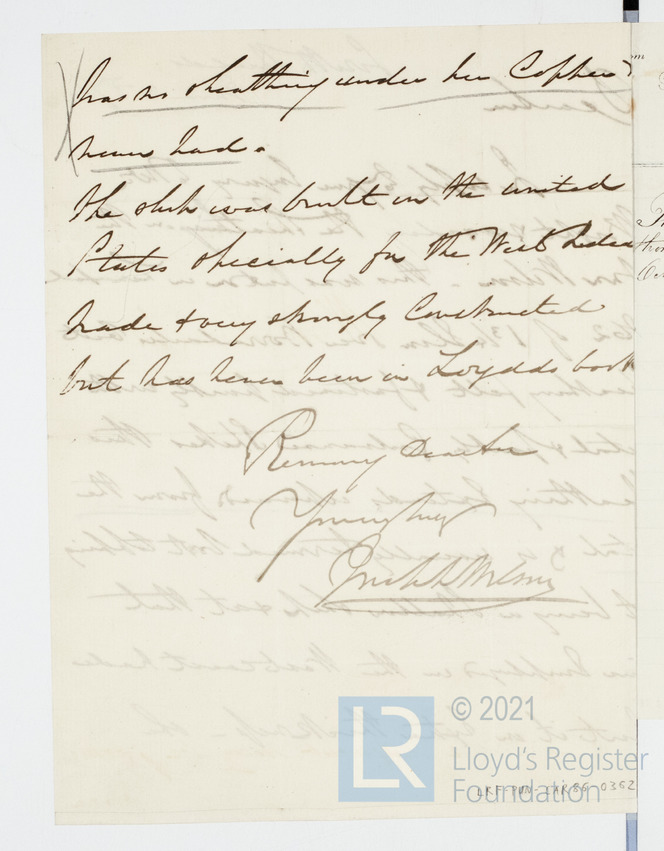 has no sheathing under her Copper &
never had.
The ship was built in the united
States specially for the West India
trade & very strongly Constructed
but has never been in Loydds book
Remaining Dear Sir
Yours truly
© 2021
LR
Lloyd's Register
Foundation